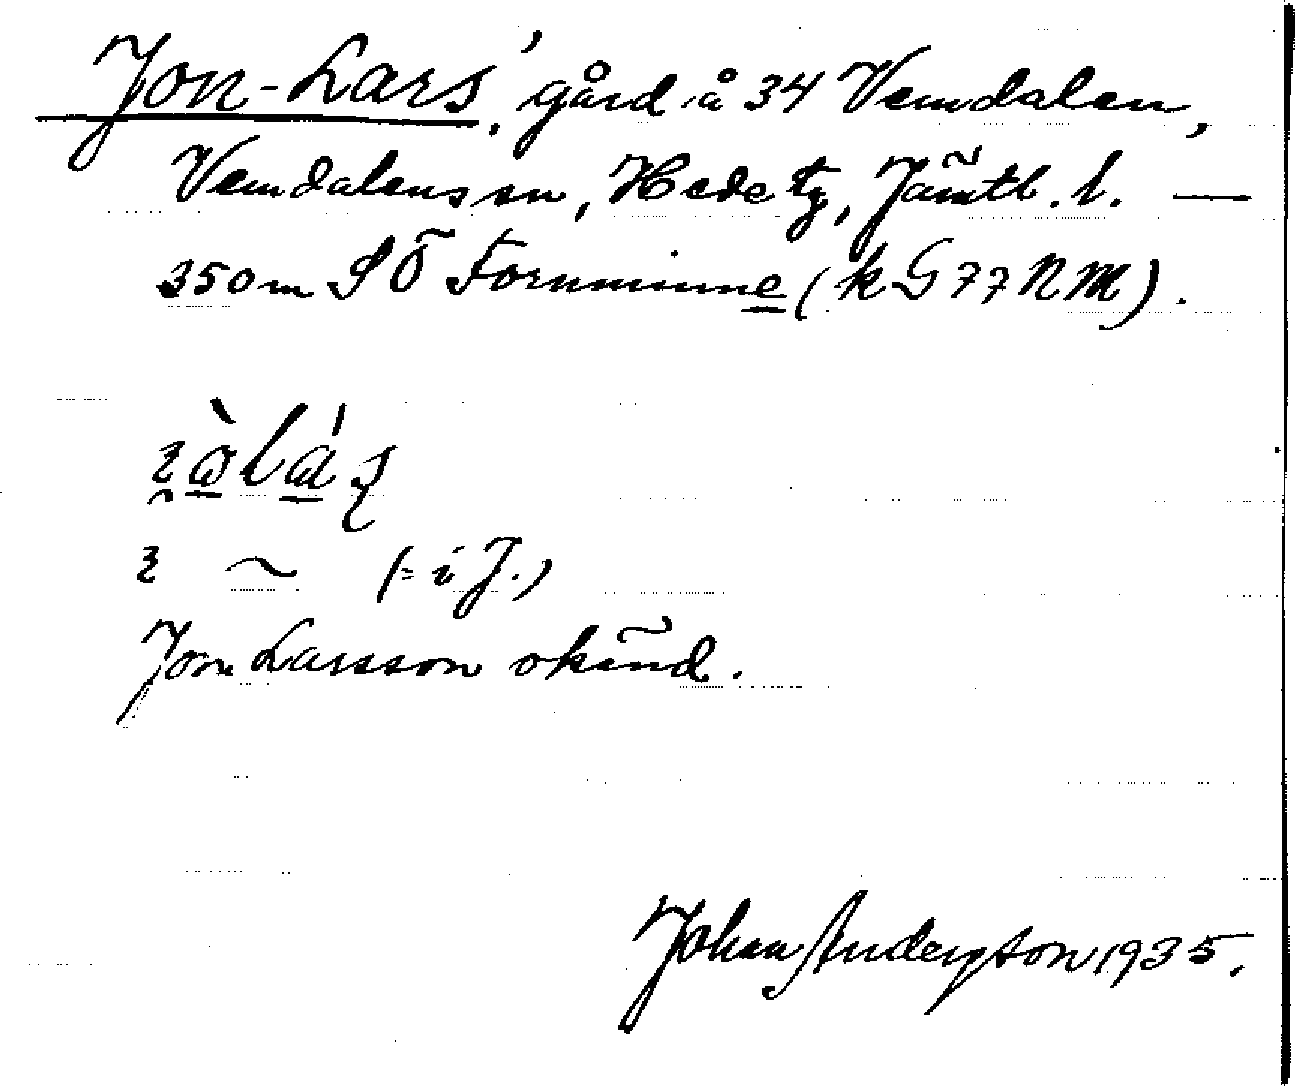 Jon-Lars', gård å 34 Vemdalen,
Vemdalens sn, Hede tg, Jämtl. l. —
350 m SÖ Fornminne (k G 77 N M).
(= i J.)
Jon Larsson okänd.
Johan Anderston 1935.